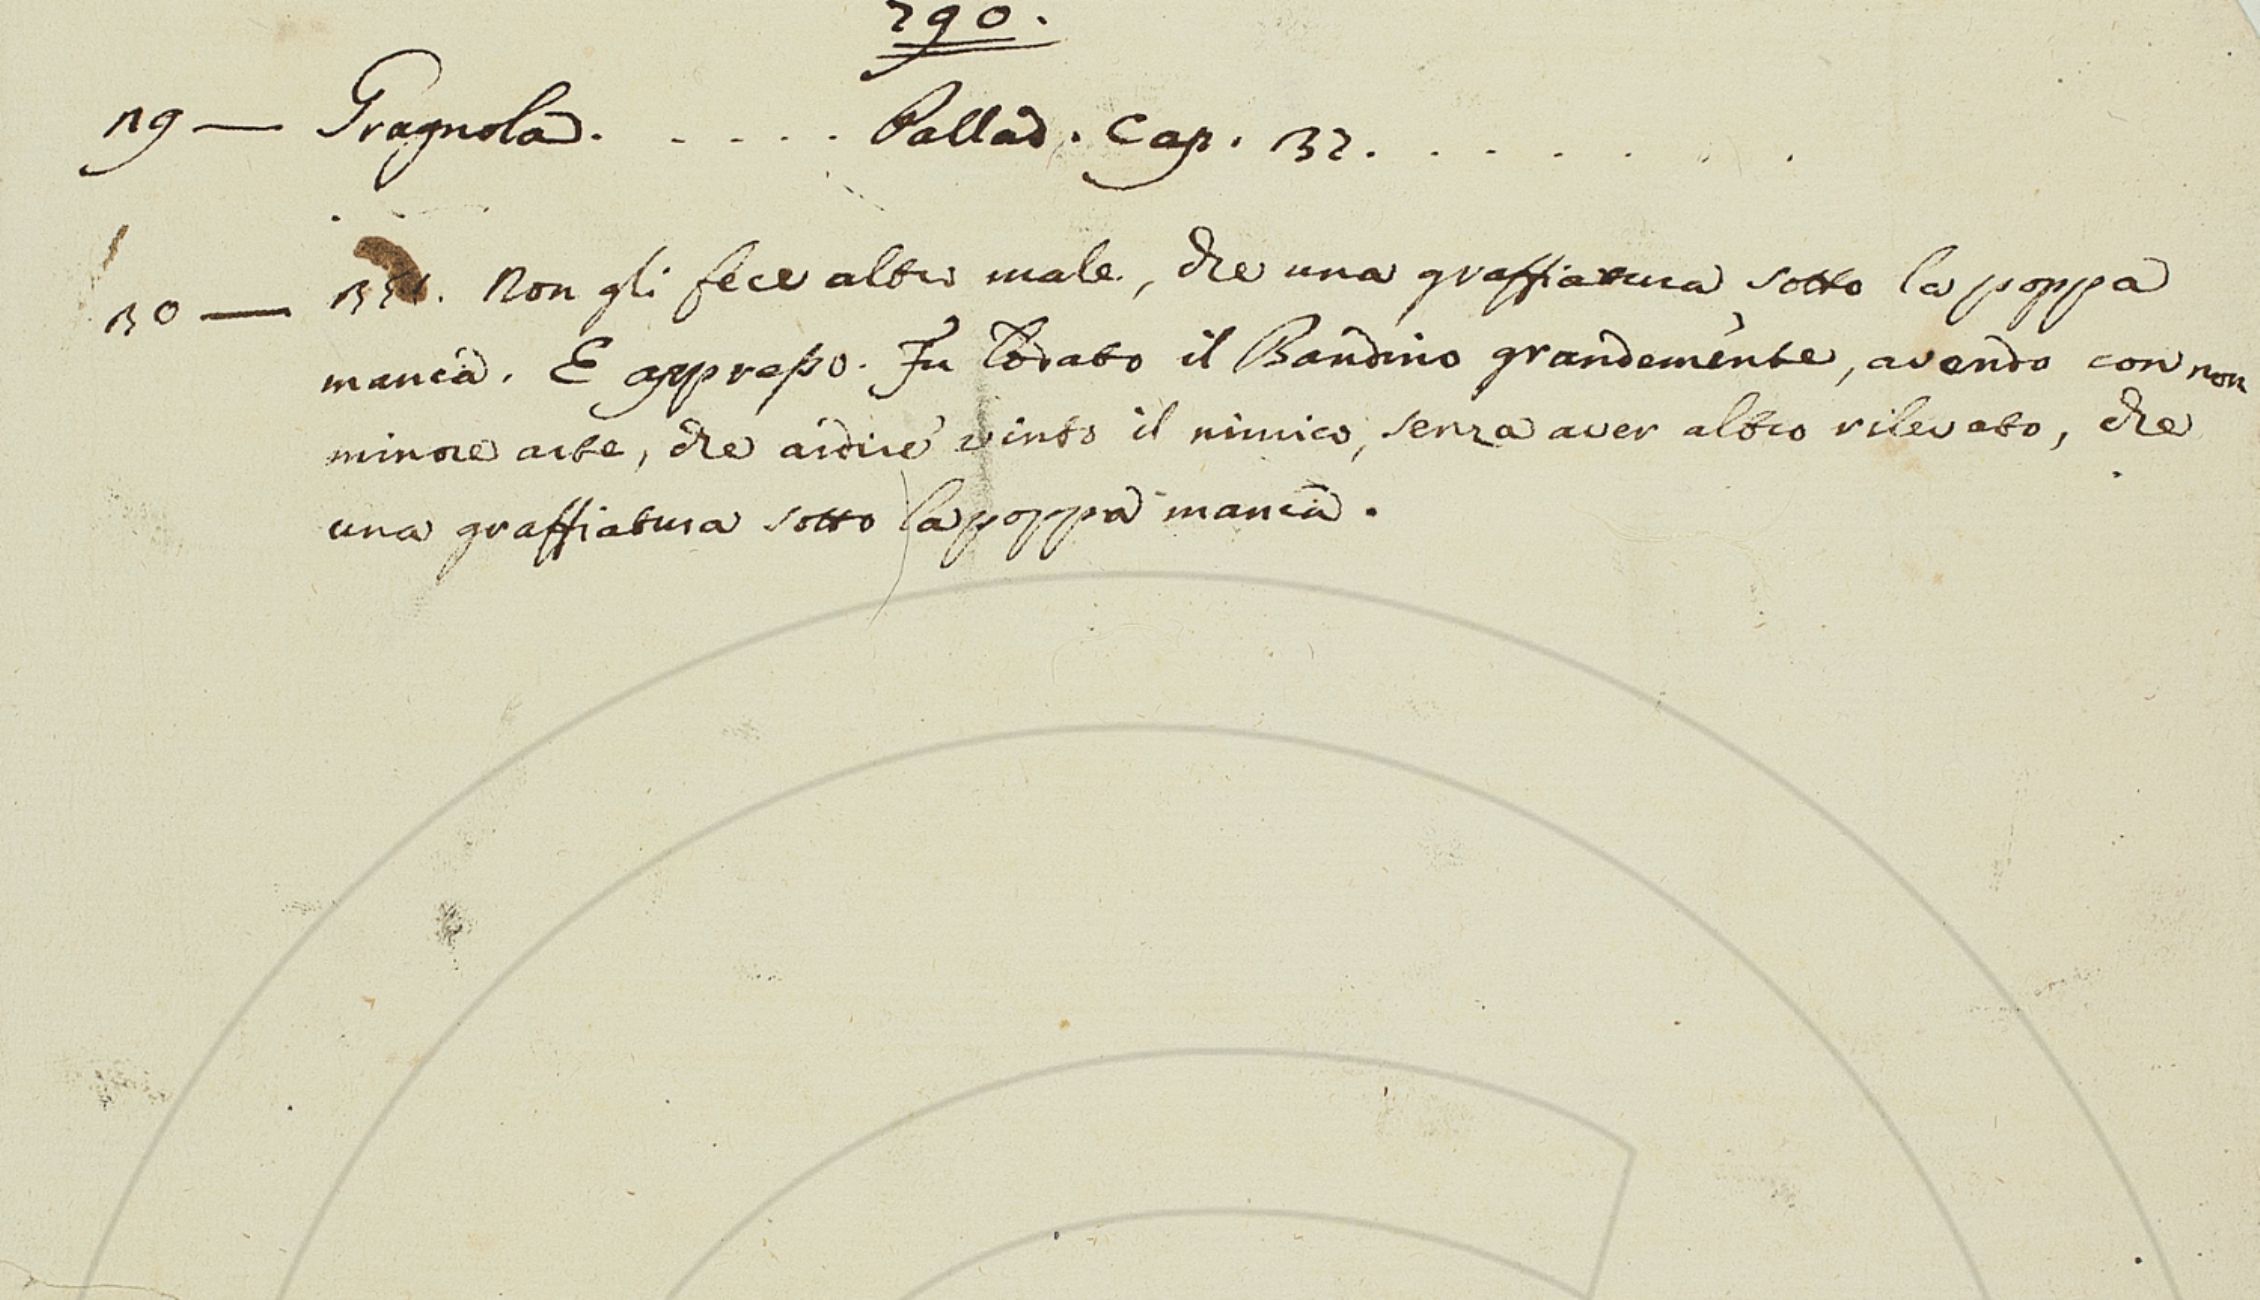 290.
29 — Gragnola. . . . . Pallad. Cap. 32. . . . . . .
30 — 351. Non gli fece altro male, che una graffiatura sotto la poppa
manca. E appresso. Fu lodato il Bandino grandemente, avendo con non
minore arte, che ardire vinto il nimico, senza aver altro rilevato, che
una graffiatura sotto la poppa manca.